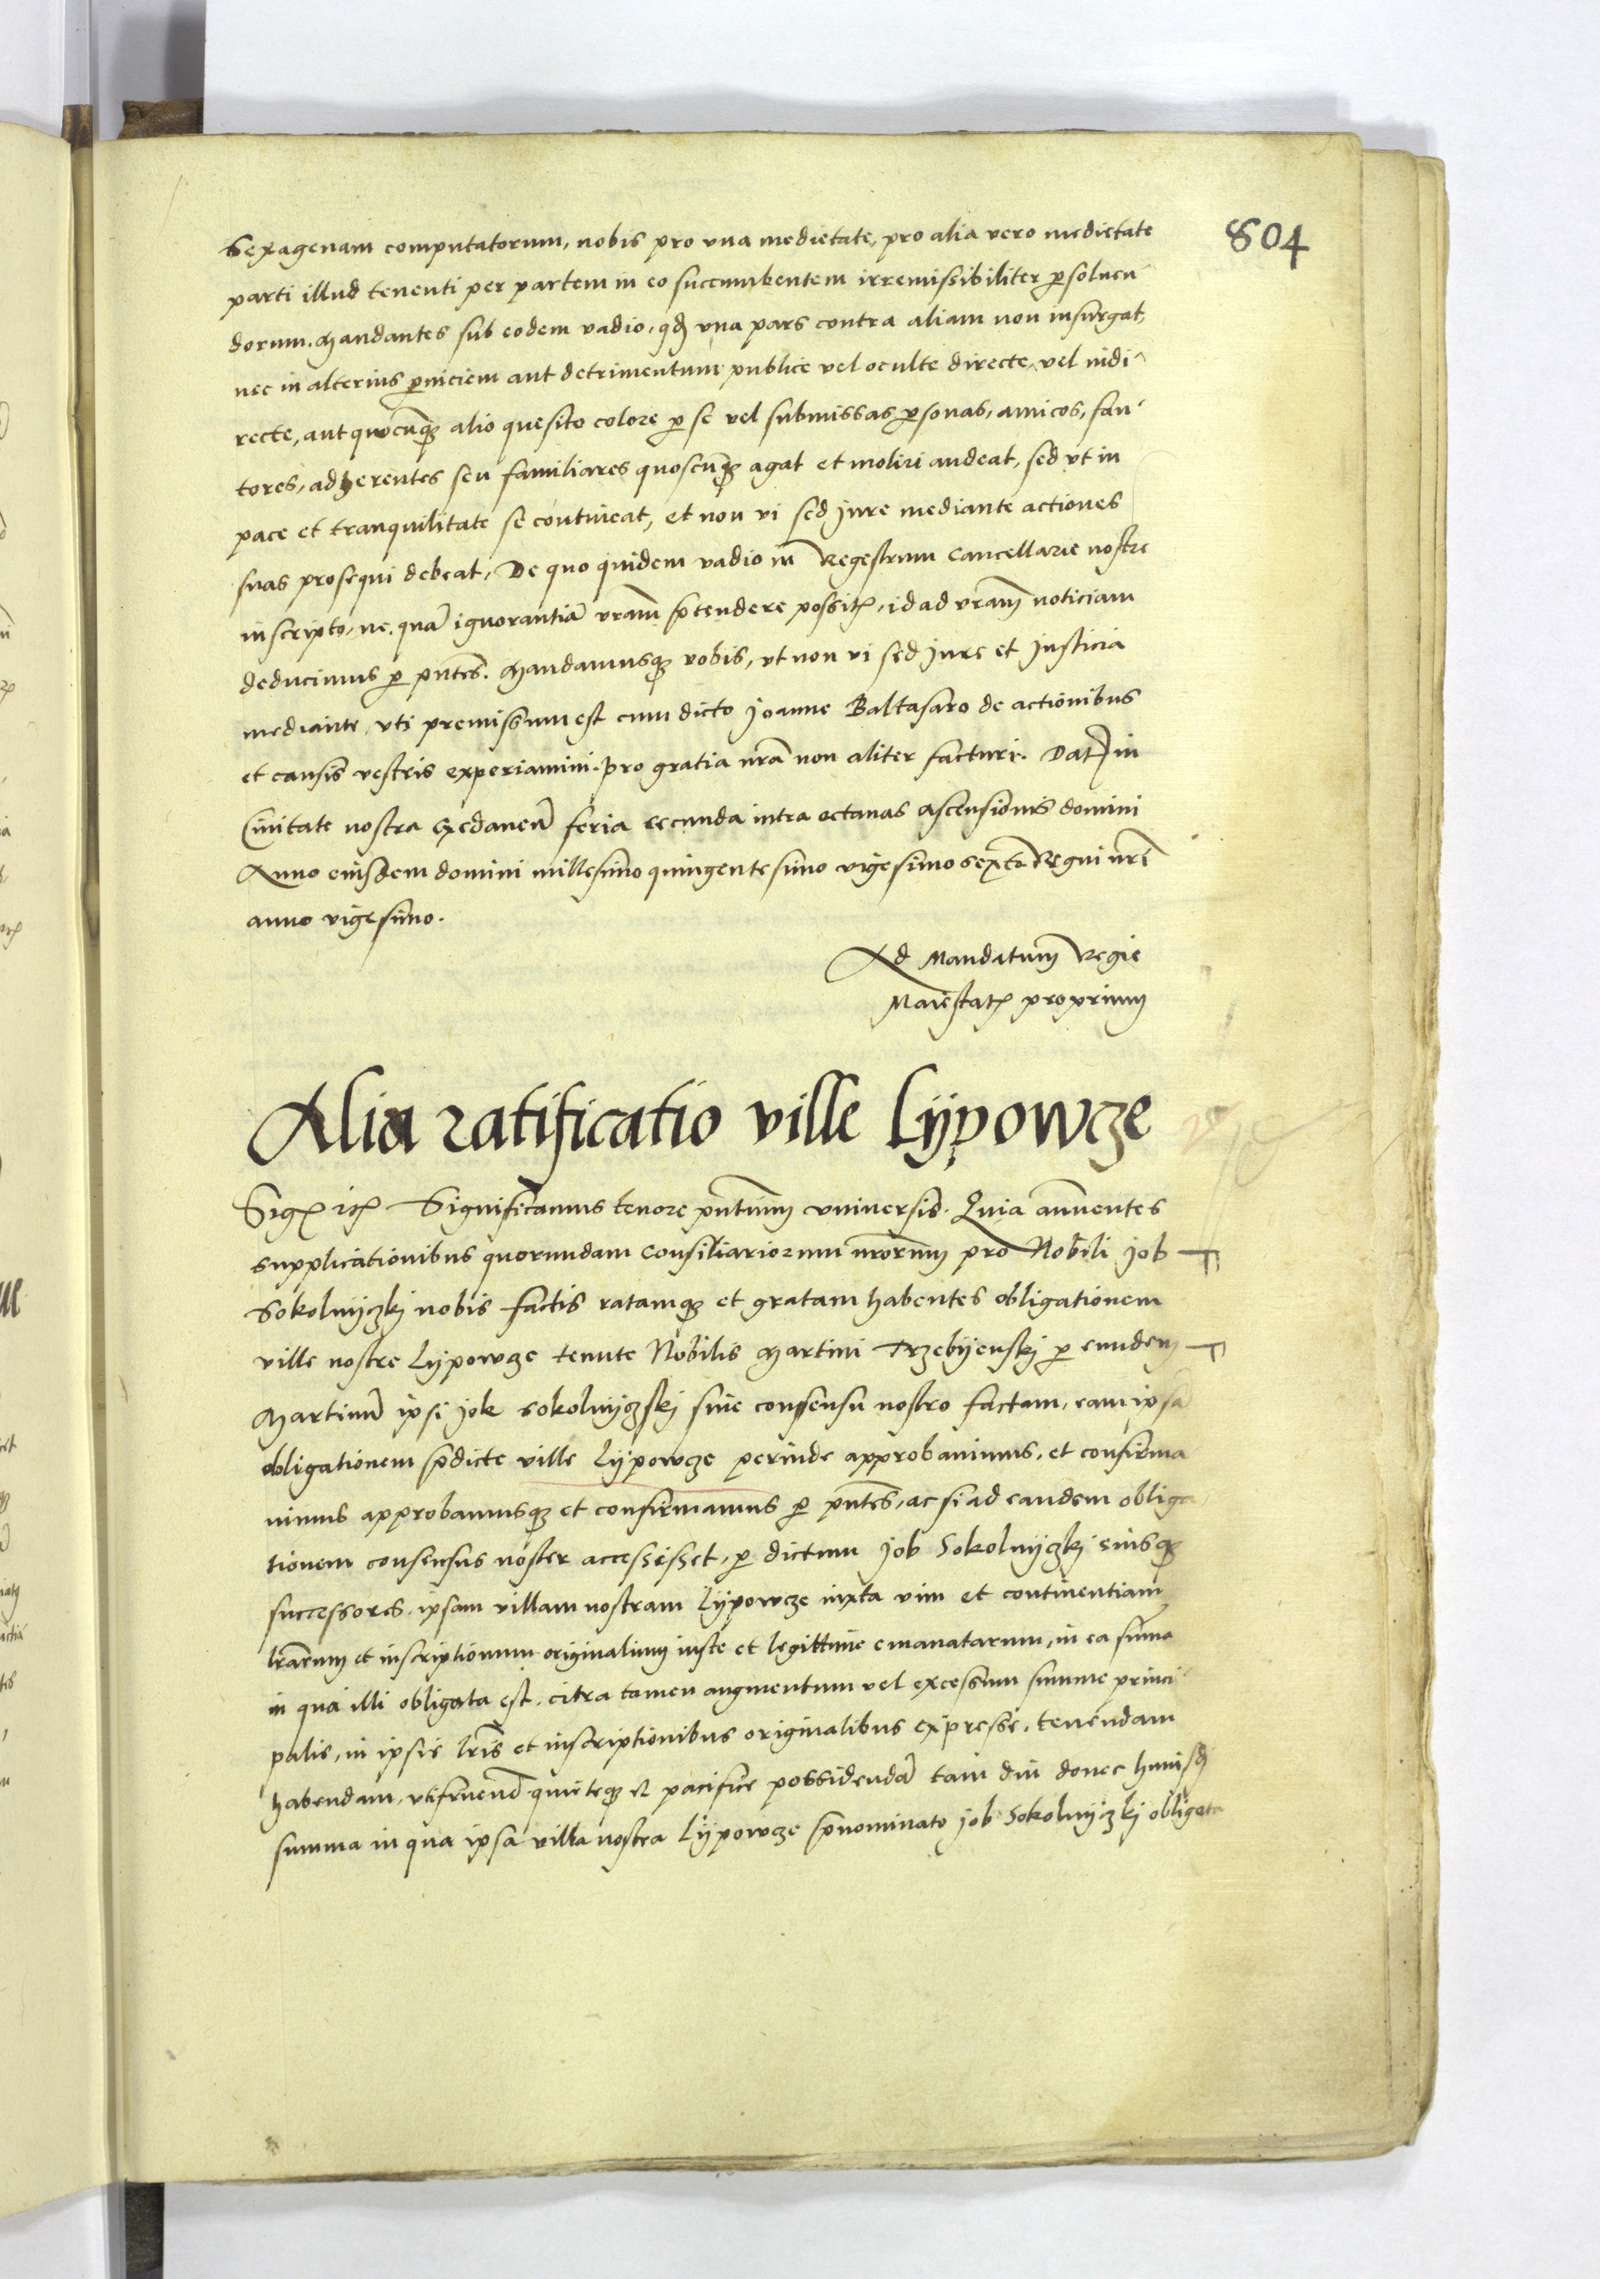 804
Sexagenam computatorum, nobis pro vna medietate, pro alia vero medietate
parti illud tenenti per partem in eo succumbentem irremissibiliter p̱soluen
dorum. Mandantes sub eodem vadio, qđ vna pars contra aliam non insurgat,
nec in alterius p̱niciem aut detrimentum publice vel oculte directe, vel indi
recte, aut quocūqȝ alio quesito colore p̱ se vel submissas p̱sonas, amicos, fau
tores, adherentes seu familiares quoscūqȝ agat et moliri audeat, sed vt in
pace et tranquilitate se contineat, et non vi sed jure mediante actiones
suas prosequi debeat, De quo quidem vadio in Regestrum Cancellarie nostre
inscripto, ne quā ignorantiā vram̄ p̄tendere possitꝭ, id ad vram̄ noticiam
deducimus p̱ pn̄tes. Mandamusqȝ vobis, vt non vi sed jure et justicia
mediante, vti premissum est cum dicto Joanne Baltasaro de actionibus
et causis vestris experiamini. pro gratia nrā non aliter facturi. Datꝭ in
Ciuitate nostra Gedaneñ feria secunda intra octauas Ascensionis domini
Anno eiusdem domini millesimo quingentesimo vigesimo sexto Regni nrī
anno vigesimo.
Ad Mandatum Regie
Maiestatꝭ proprium
Alia ratificatio ville Lÿpowcze
Sigꝭ itꝭ Significamus tenore pn̄tium vniuersis. Quia annuentes
supplicationibus quorundam Consiliariorum nrōrum pro Nobili Job
Sokolnÿczkj nobis factis ratamqȝ et gratam habentes obligationem
ville nostre Lÿpowcze tenute Nobilis Martini Trzebÿenskj p̱ eundem
Martinū ipsi Job Sokolnÿczskj sine consensu nostro factam, eam ipsā
obligationem p̄dicte ville Lÿpowcze perinde approbauimus, et confirma
uimus approbamusqȝ et confirmamus p̱ pn̄tes, ac si ad eandem obliga
tionem consensus noster accessisset, p̱ dictum Job Sokolnÿczkj eiusqȝ
successores, ipsam villam nostram Lÿpowcze iuxta vim et continentiam
lrārum et inscriptionum originalium iuste et legittime emanatarum, in ea sūma
in qua illi obligata est, citra tamen augmentum vel excessum summe princi
palis, in ipsis lrīs et inscriptionibus originalibus expresse, tenendam
habendam, vtifruend̄ quieteqȝ et pacifice possidendā tam diu donec huiusm̄
summa in qua ipsa villa nostra Lÿpowcze p̄nominato Job Sokolnÿczkj obligata